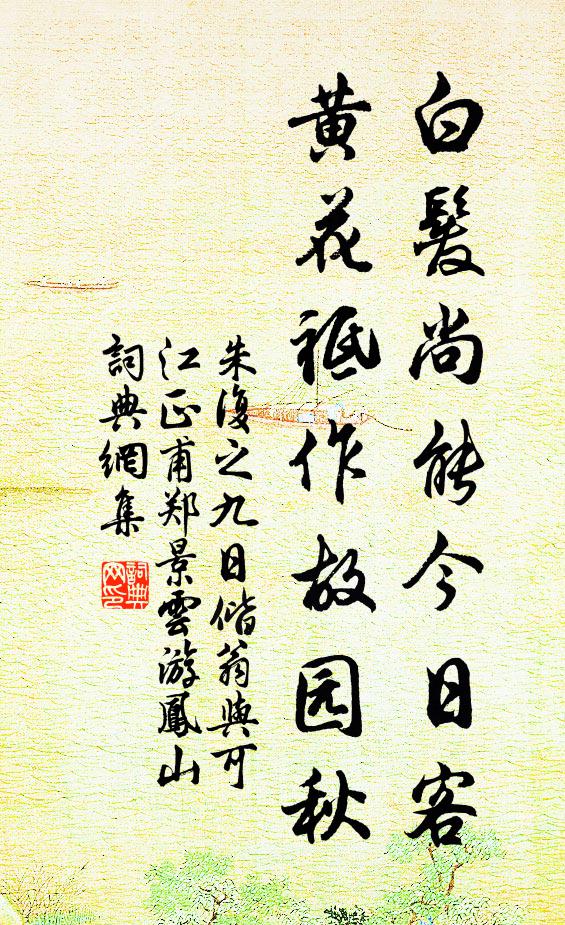 白髮尚能今日客
黄花祇作故园秋
朱復之九日偕翁與可
江正甫郑景雲游鳳山
詞典網集
詞典網印